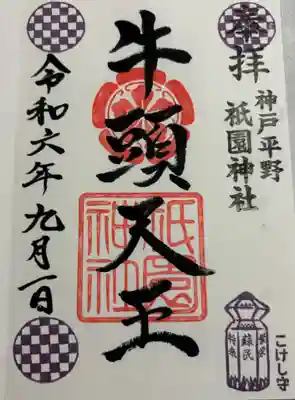 奉拝
神戸平野
祇園神社
牛頭天王
祇園
神社
令和六年九月一日
こけし守
蘇民